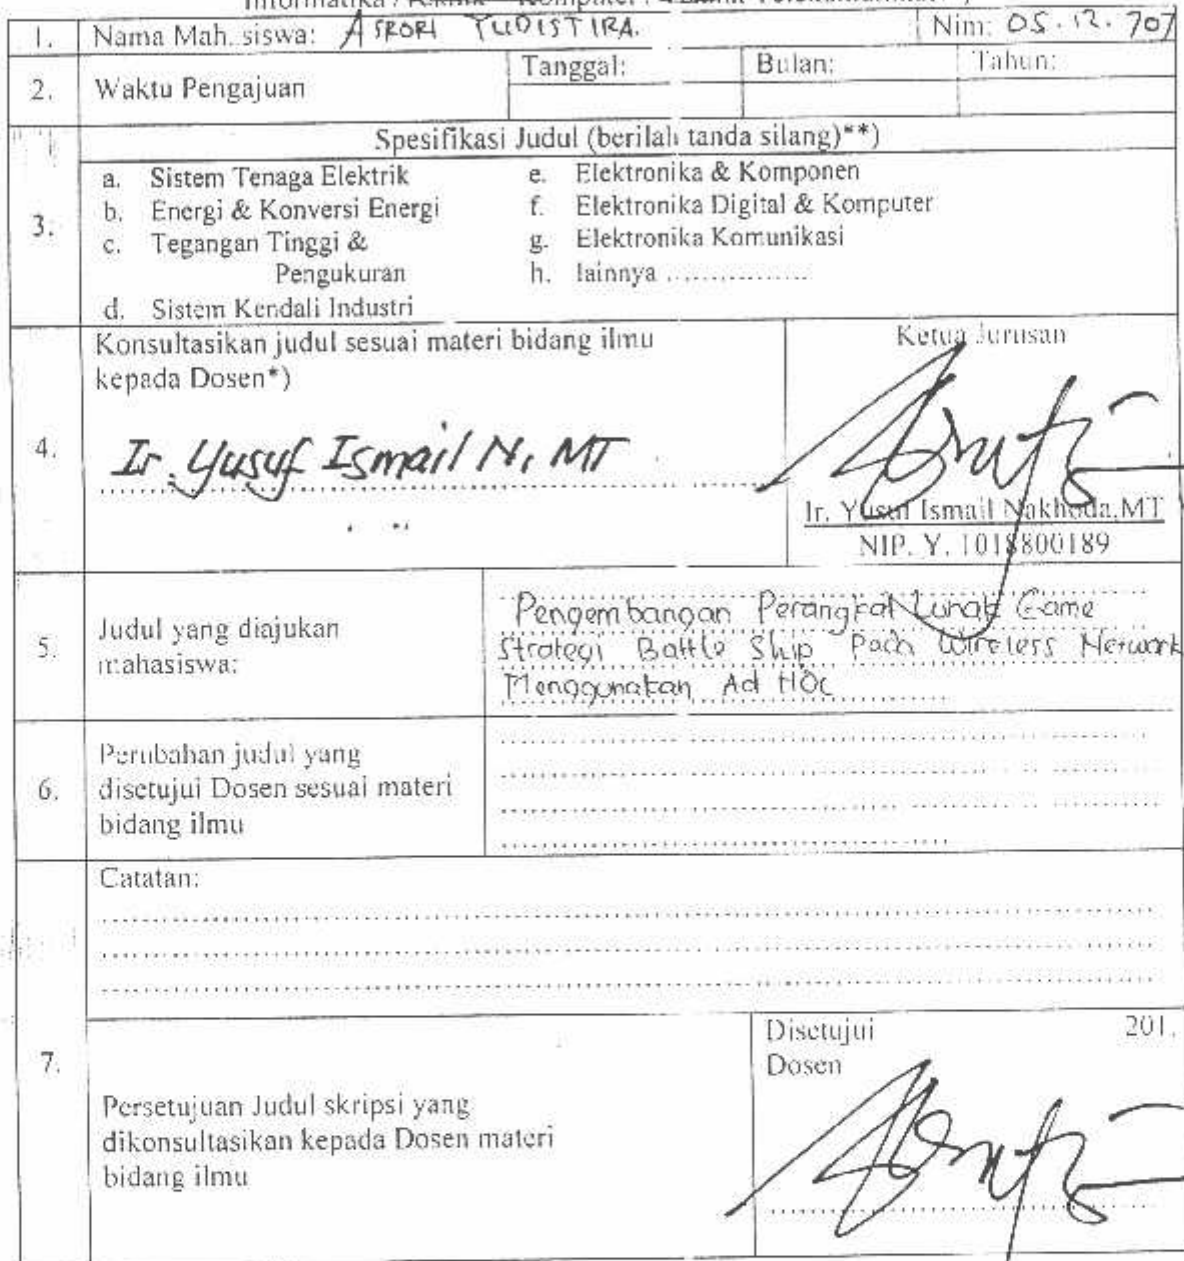 Informatika / Teknik Komputer /
1. Nama Mahasiswa: ASRORI YUDISTIRA. Nim: 05.12.707
2. Waktu Pengajuan Tanggal: Bulan: Tahun:
3. Spesifikasi Judul (berilah tanda silang)**)
a. Sistem Tenaga Elektrik e. Elektronika & Komponen
b. Energi & Konversi Energi f. Elektronika Digital & Komputer
c. Tegangan Tinggi & g. Elektronika Komunikasi
Pengukuran h. lainnya ................
d. Sistem Kendali Industri
4. Konsultasikan judul sesuai materi bidang ilmu
kepada Dosen*)
Ir. Yusuf Ismail N, MT
Ketua Jurusan
Ir. Yusuf Ismail Nakhoda,MT
NIP. Y. 1018800189
5. Judul yang diajukan
mahasiswa:
Pengembangan Perangkat Lunak Game
Strategi Battle Ship Pada Wireless Network
Menggunakan Ad HOc
6. Perubahan judul yang
disetujui Dosen sesuai materi
bidang ilmu
Catatan:
7. Persetujuan Judul skripsi yang
dikonsultasikan kepada Dosen materi
bidang ilmu
Disetujui 201.
Dosen